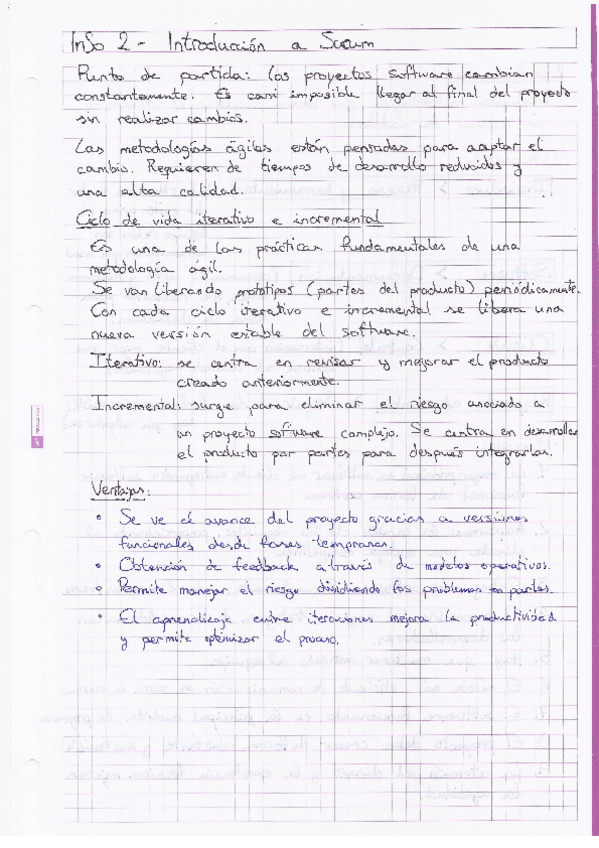 InSo 2 - Introducción a Scrum
Punto de partida: los proyectos software cambian
constantemente. Es casi imposible llegar al final del proyecto
sin realizar cambios.
Las metodologías ágiles están pensadas para aceptar el
cambio. Requieren de tiempos de desarrollo reducidos y
una alta calidad.
Ciclo de vida iterativo e incremental
Es una de las prácticas fundamentales de una
metodología ágil.
Se van liberando prototipos (partes del producto) periódicamente.
Con cada ciclo iterativo e incremental se libera una
nueva versión estable del software.
Iterativo: se centra en revisar y mejorar el producto
creado anteriormente.
Incremental: surge para eliminar el riesgo asociado a
un proyecto software complejo. Se centra en desarrollar
el producto por partes para después integrarlas.
Ventajas:
• Se ve el avance del proyecto gracias a versiones
funcionales desde fases tempranas.
• Obtención de feedback a través de modelos operativos.
• Permite manejar el riesgo dividiendo los problemas en partes.
• El aprendizaje entre iteraciones mejora la productividad
y permite optimizar el proceso.